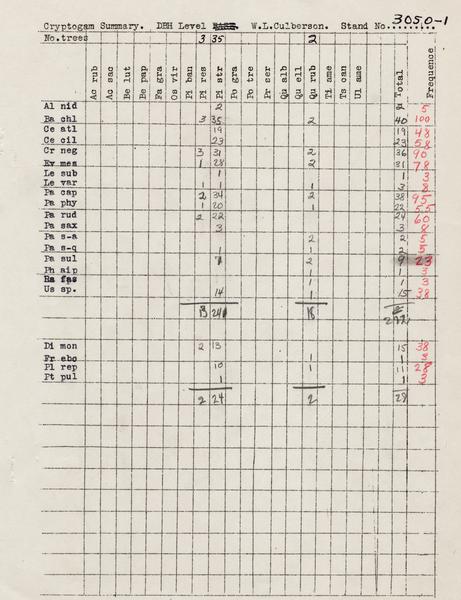 Cryptogam Summary. DBH Level W.L.Culberson. Stand No. 3050-1
No.trees 3 35 2
Ac rub Ac sac Be lut Be pap Fa gra Os vir Pi ban Pi res Pi str Po gra Po tre Pr ser Qu alb Qu ell Qu rub Ti ame Ts can Ul ame Total Frequence
Al nid 2 2 5
Ba chl 3 35 2 40 100
Ce atl 19 19 48
Ce cil 23 23 58
Cr neg 3 31 2 36 90
Ev mes 1 28 2 31 78
Le sub 1 1 3
Le var 1 1 1 3 8
Pa cap 2 34 2 38 95
Pa phy 1 20 1 22 55
Pa rud 2 22 24 60
Pa sax 3 3 8
Pa s-a 2 2 5
Pa s-q 1 1 2 5
Pa sul 7 2 9 23
Ph aip 1 1 3
Ra fas 1 1 3
Us sp. 14 1 15 38
13 241 18 272
Di mon 2 13 15 38
Fr ebo 1 1 3
Pl rep 10 1 11 28
Pt pul 1 1 3
2 24 2 28